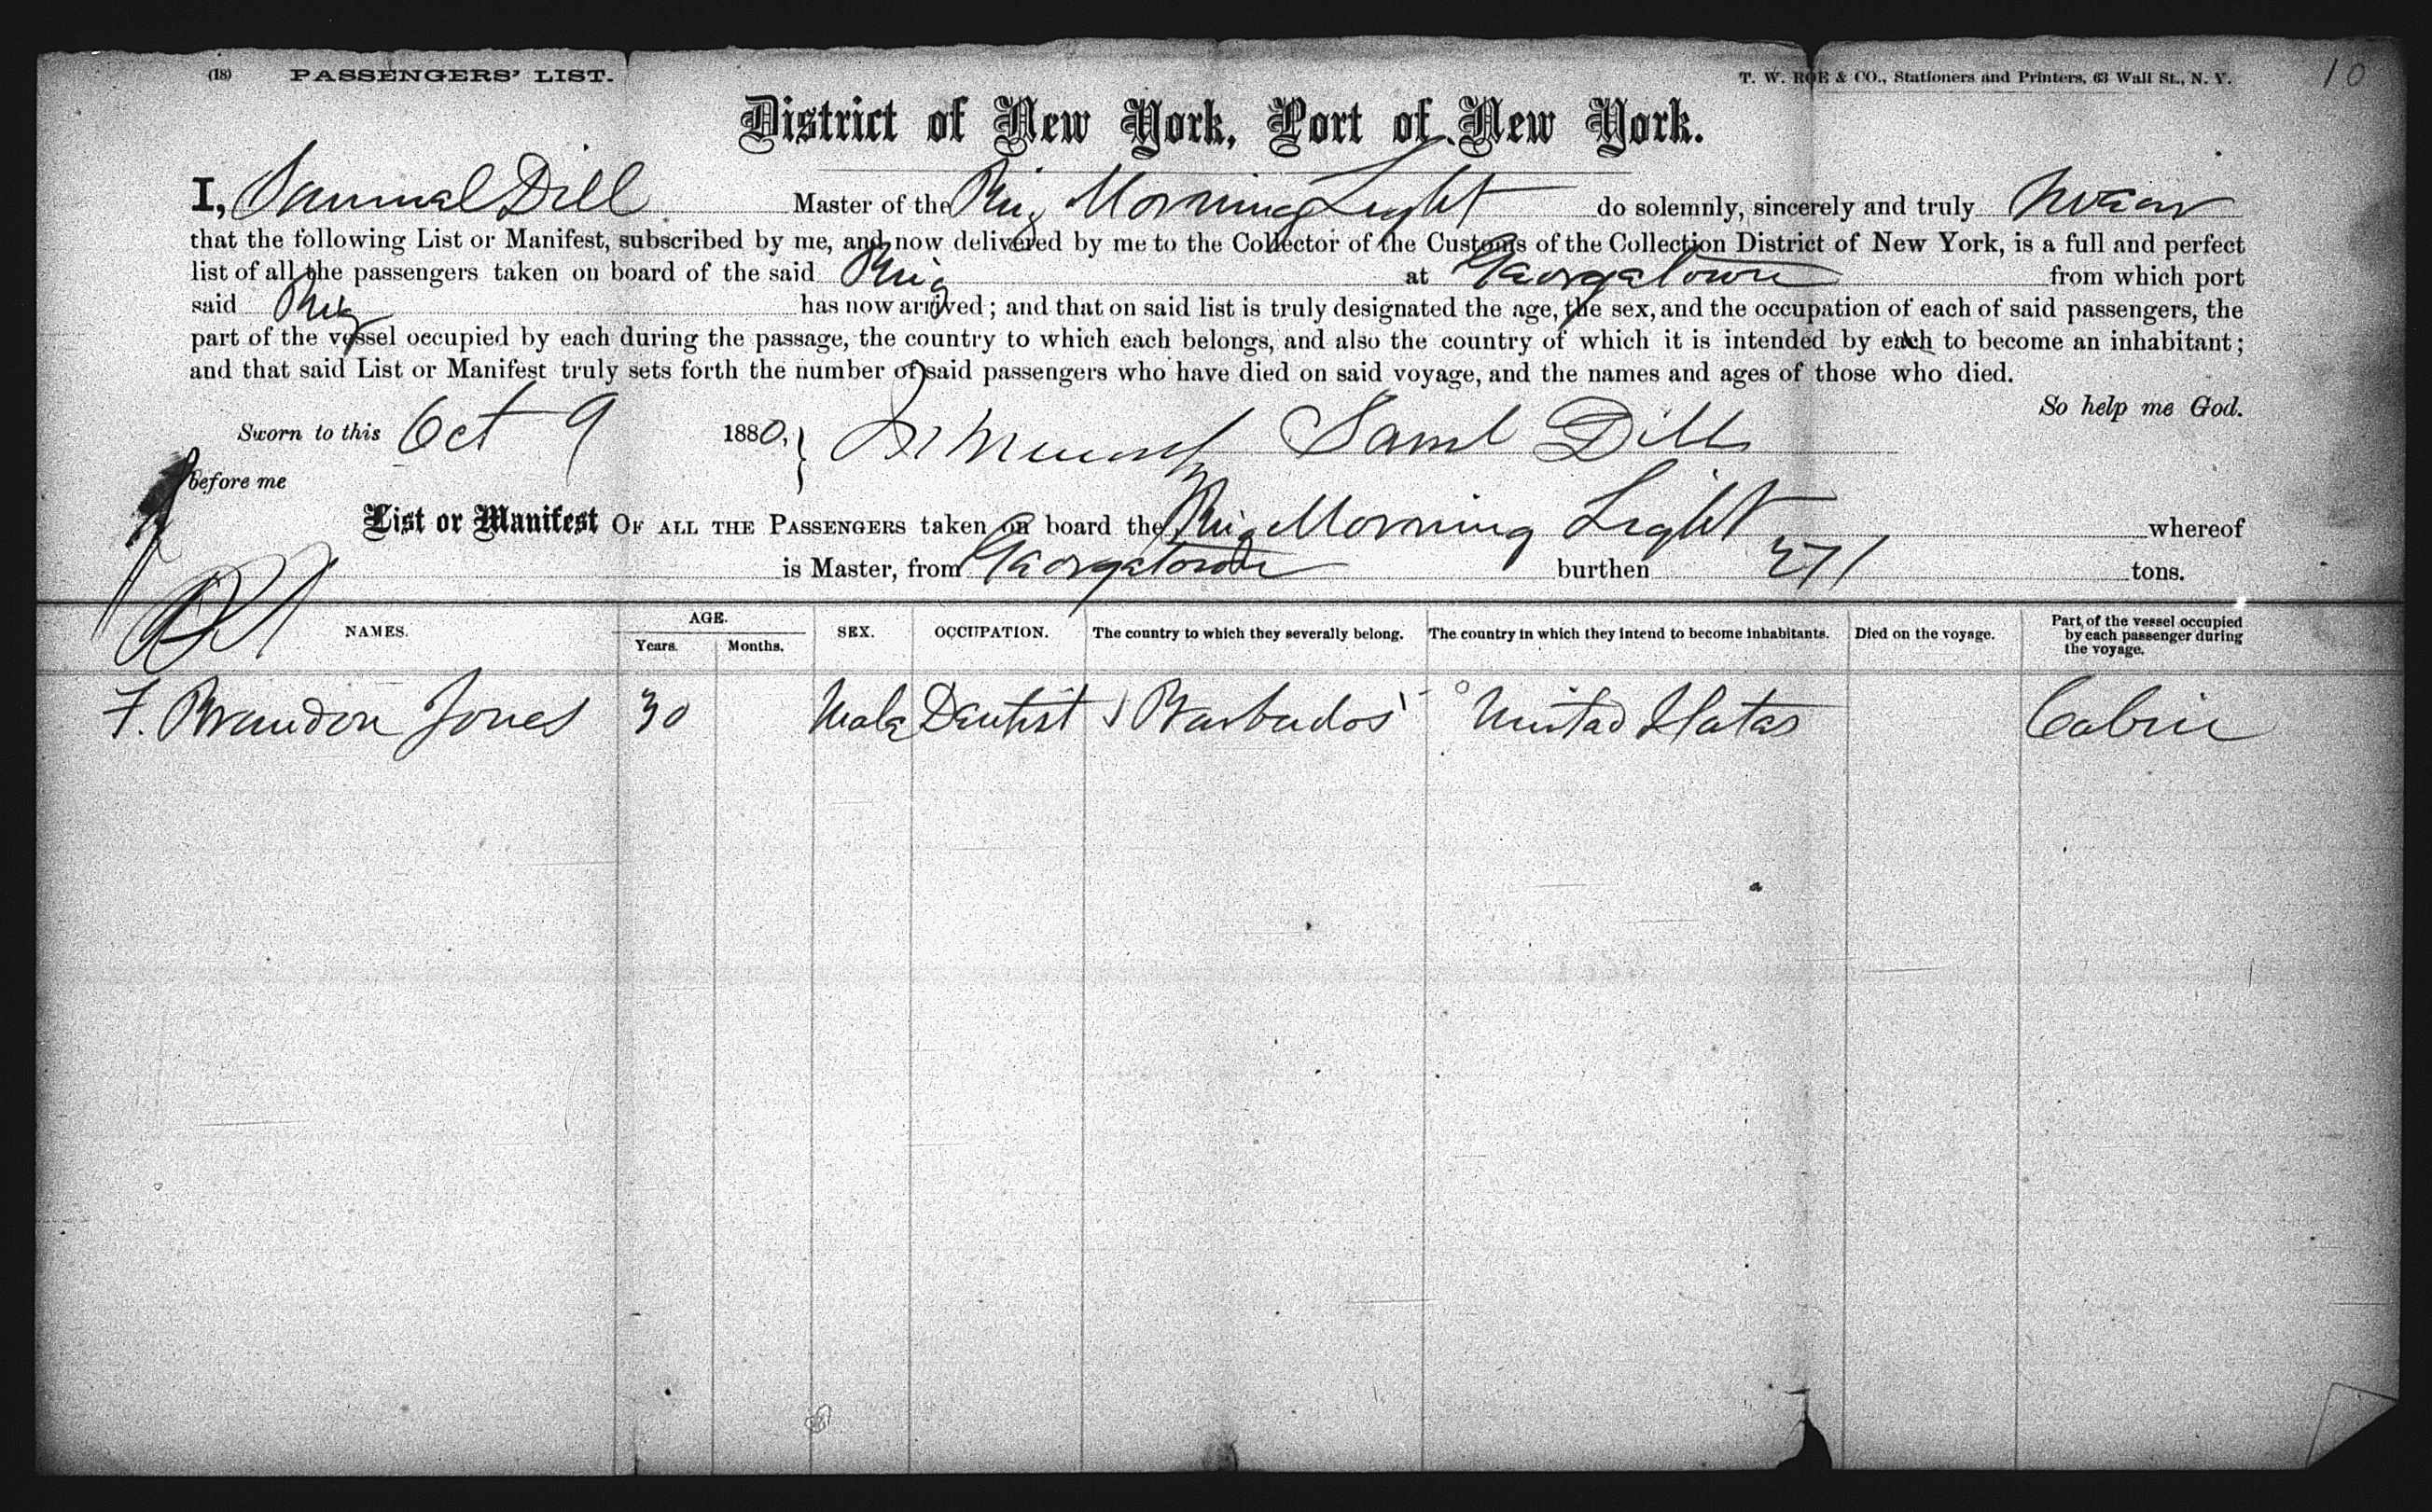 (18) PASSENGERS' LIST. T. W. ROE & CO., Stationers and Printers, 63 Wall St., N. Y. 10
District of New York, Port of New York.
I, Samual Dill Master of the Brig Morning Light do solemnly, sincerely and truly swear
that the following List or Manifest, subscribed by me, and now delivered by me to the Collector of the Customs of the Collection District of New York, is a full and perfect
list of all the passengers taken on board of the said Brig at Georgetown from which port
said Brig has now arrived; and that on said list is truly designated the age, the sex, and the occupation of each of said passengers, the
part of the vessel occupied by each during the passage, the country to which each belongs, and also the country of which it is intended by each to become an inhabitant;
and that said List or Manifest truly sets forth the number of said passengers who have died on said voyage, and the names and ages of those who died.
So help me God.
Sworn to this Oct 9 1880, Saml Dill
before me
List or Manifest OF ALL THE PASSENGERS taken on board the Brig Morning Light whereof
is Master, from Georgetown burthen 271 tons.
NAMES. AGE. Years. Months. SEX. OCCUPATION. The country to which they severally belong. The country in which they intend to become inhabitants. Died on the voyage. Part of the vessel occupied by each passenger during the voyage.
F. Brandon Jones 30 Male Dentist Barbados United States Cabin